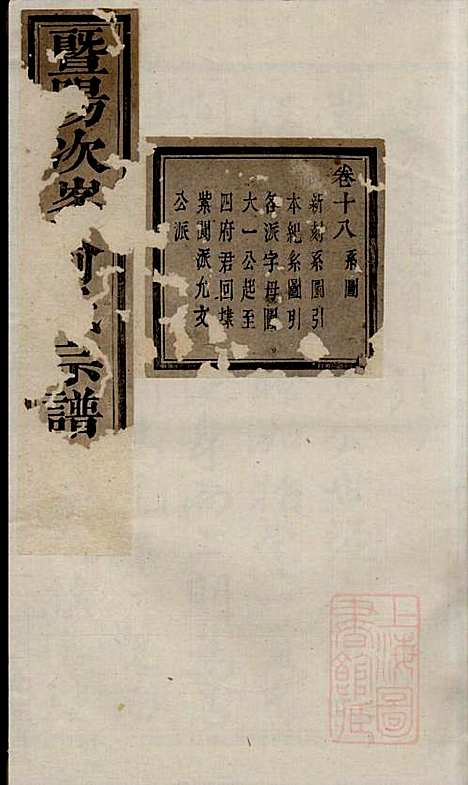 卷十八 系圖
新刻系圖引
本紀系圖引
各派字母圖
大一公起至
四府君回㙮
紫閬派允文
公派
暨陽次峯 宗譜
上海圖書館藏